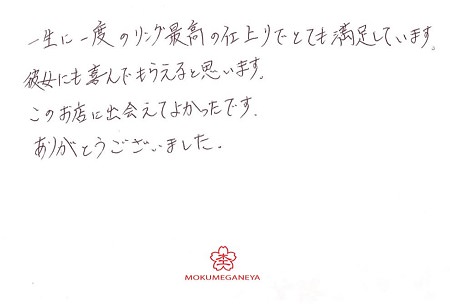 一生に一度のリング最高の仕上りでとても満足しています。
彼女にも喜んでもらえると思います。
このお店に出会えてよかったです。
ありがとうございました。
MOKUMEGANEYA